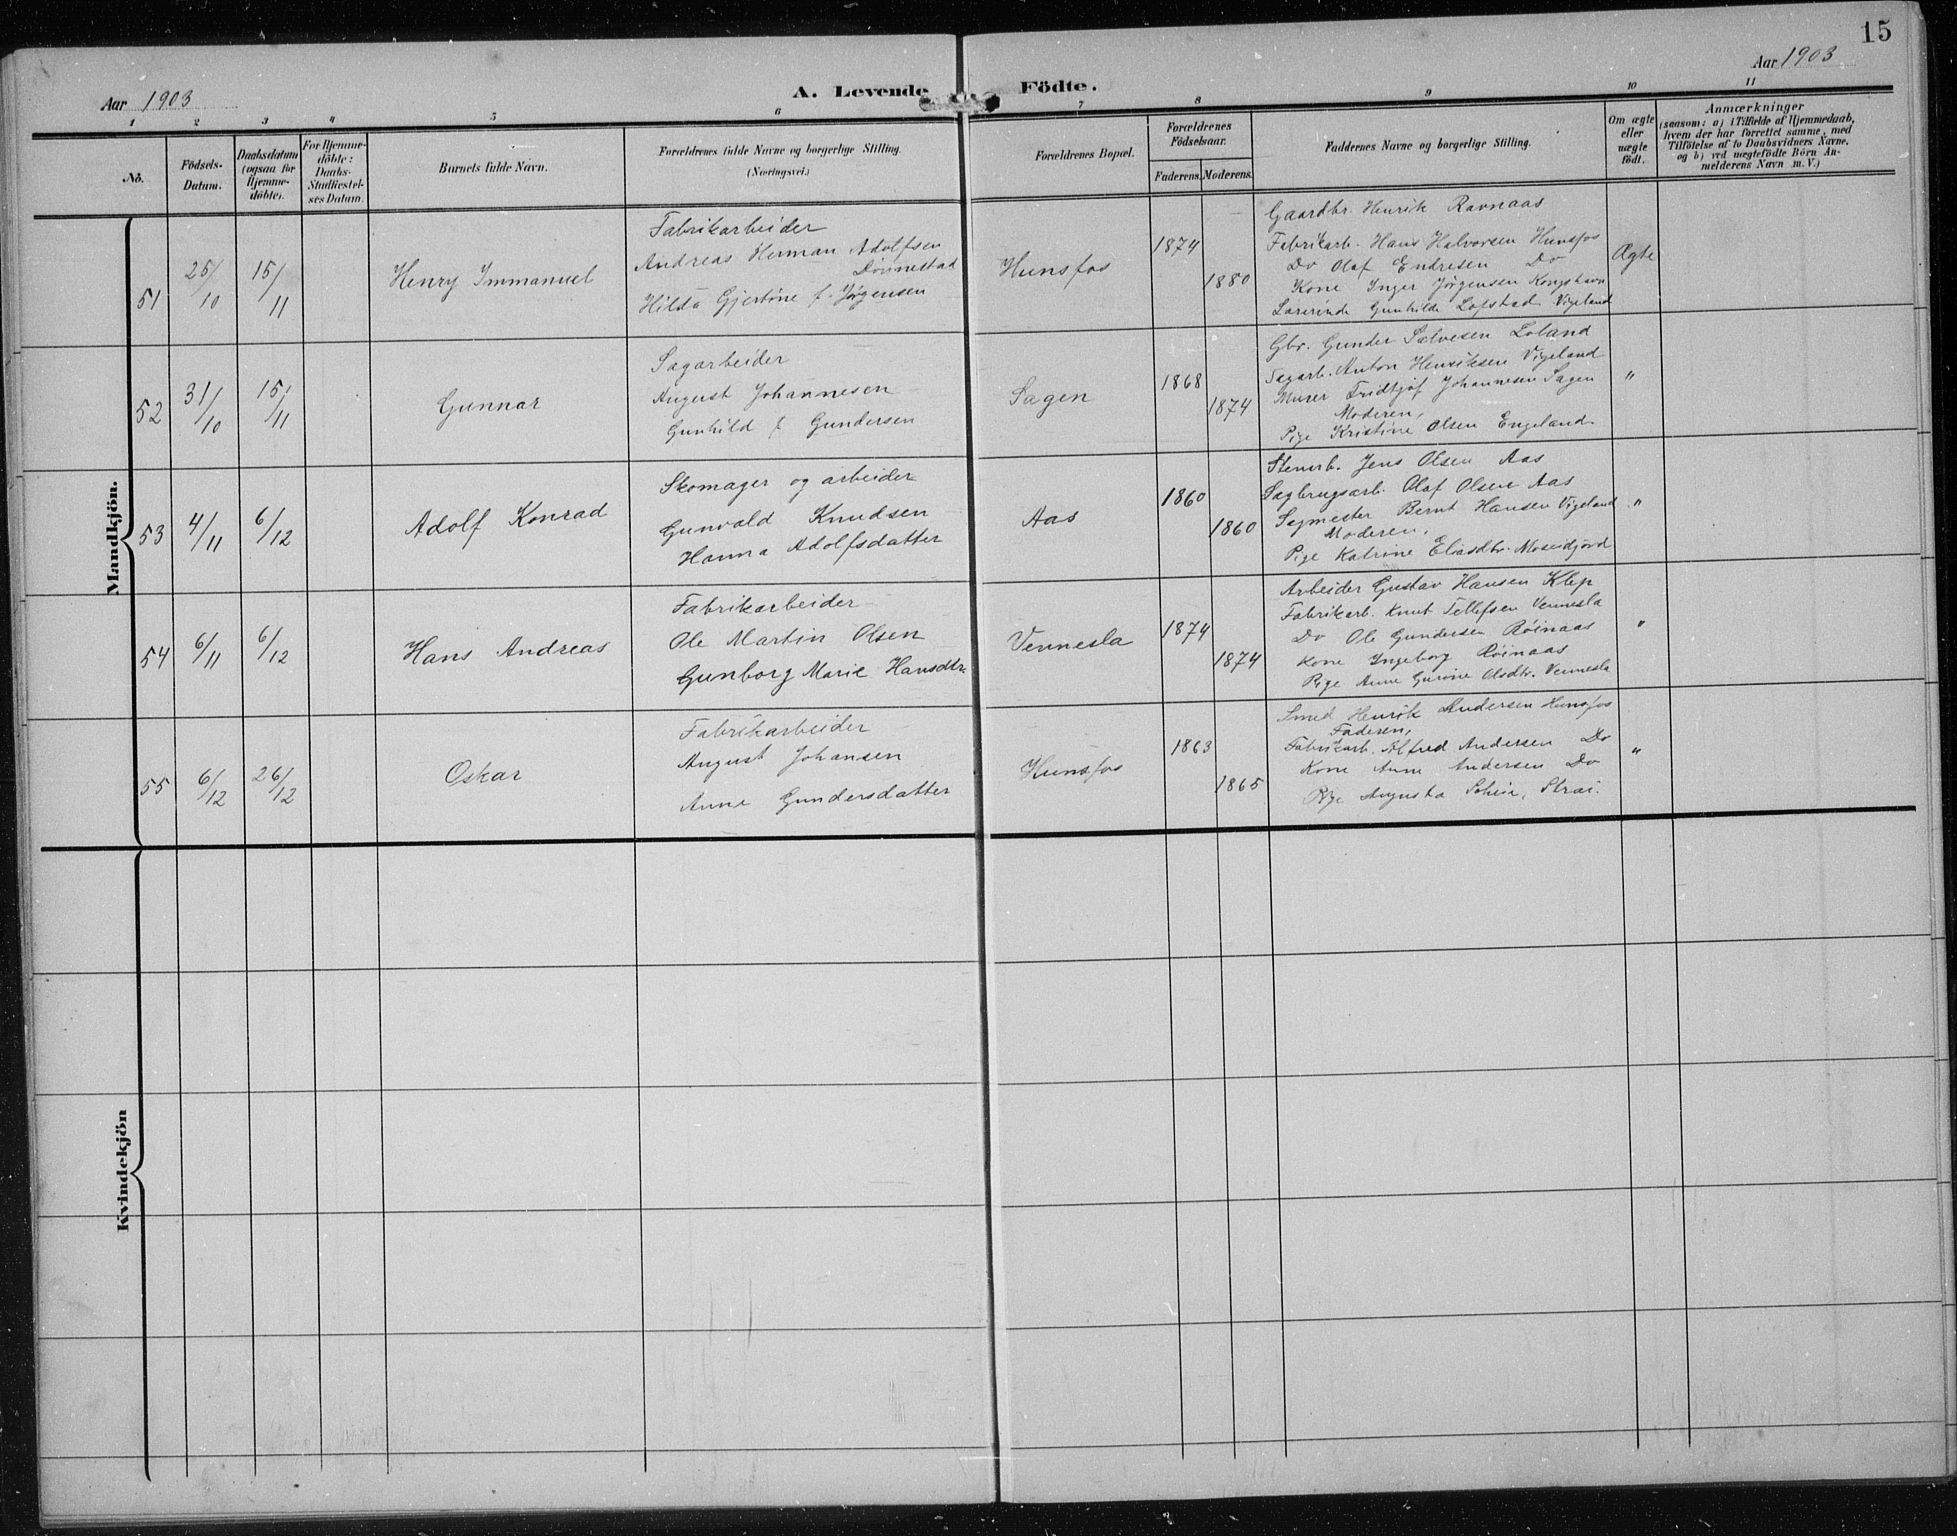 15
Aar 1903
A. Levende Födte.
Aar 1903
1 2 3 4 5 6 7 8 9 10 11
No.
Födsels-
Datum.
Daabsdatum
(ogsaa for
Hjemme-
döbte).
For Hjemme-
döbte:
Daabs-
Stadfæstel-
ses Datum.
Barnets fulde Navn.
Forældrenes fulde Navne og borgerlige Stilling.
(Næringsvei.)
Forældrenes Bopæl.
Forældrenes
Födselsaar.
Faderens. Moderens.
Faddernes Navne og borgerlige Stilling.
Om ægte
eller
uægte
födt.
Anmærkninger
(saasom: a) i Tilfælde af Hjemmedaab,
hvem der har forrettet samme, med
Tilföielse af to Daabsvidners Navne,
og b) ved uægtefödte Börn An-
melderens Navn m. V.)
Mandkjön.
51
25/10
15/11
Henry Immanuel
Fabrikarbeider
Andreas Herman Adolfsen
Dønnestad
Hilda Gjertine f. Jørgensen
Hunsfos
1874
1880
Gaardbr. Henrik Ravnaas
Fabrikarb. Hans Halvorsen Hunsfos
Do Olaf Endresen Do
Kone Inger Jørgensen Kongshavn
Lærerinde Gunhilde Lofstad Vigeland
Ægte
52
31/10
15/11
Gunnar
Sagarbeider
August Johannesen
Gunhild f. Gundersen
Sagen
1868
1874
Gbr. Gunder Salvesen Loland
Sagarb. Anton Henriksen Vigeland
Murer Fridtjof Johannesen Sagen
Moderen,
Pige Kristine Olsen Engeland.
"
53
4/11
6/12
Adolf Konrad
Skomager og arbeider
Gunvald Knudsen
Hanna Adolfsdatter
Aas
1860
1860
Stenarb. Jens Olsen Aas
Sagbrugsarb. Olaf Olsen Aas
Sagmester Bernt Hansen Vigeland
Moderen,
Pige Katrine Eliasdtr. Moseidjord
"
54
6/11
6/12
Hans Andreas
Fabrikarbeider
Ole Martin Olsen
Gunborg Marie Hansdtr.
Vennesla
1874
1874
Arbeider Gustav Hansen Klep
Fabrikarb. Knut Tellefsen Vennesla
Do Ole Gundersen Röinaas
Kone Ingeborg Röinaas
Pige Anne Gurine Olsdtr. Vennesla
"
55
6/12
26/12
Oskar
Fabrikarbeider
August Johansen
Anne Gundersdatter
Hunsfos
1863
1865
Smed Henrik Andersen Hunsfos
Faderen,
Fabrikarb. Alfred Andersen Do
Kone Anne Andersen Do
Pige Augusta Scheie, Strai.
"
Kvindekjön